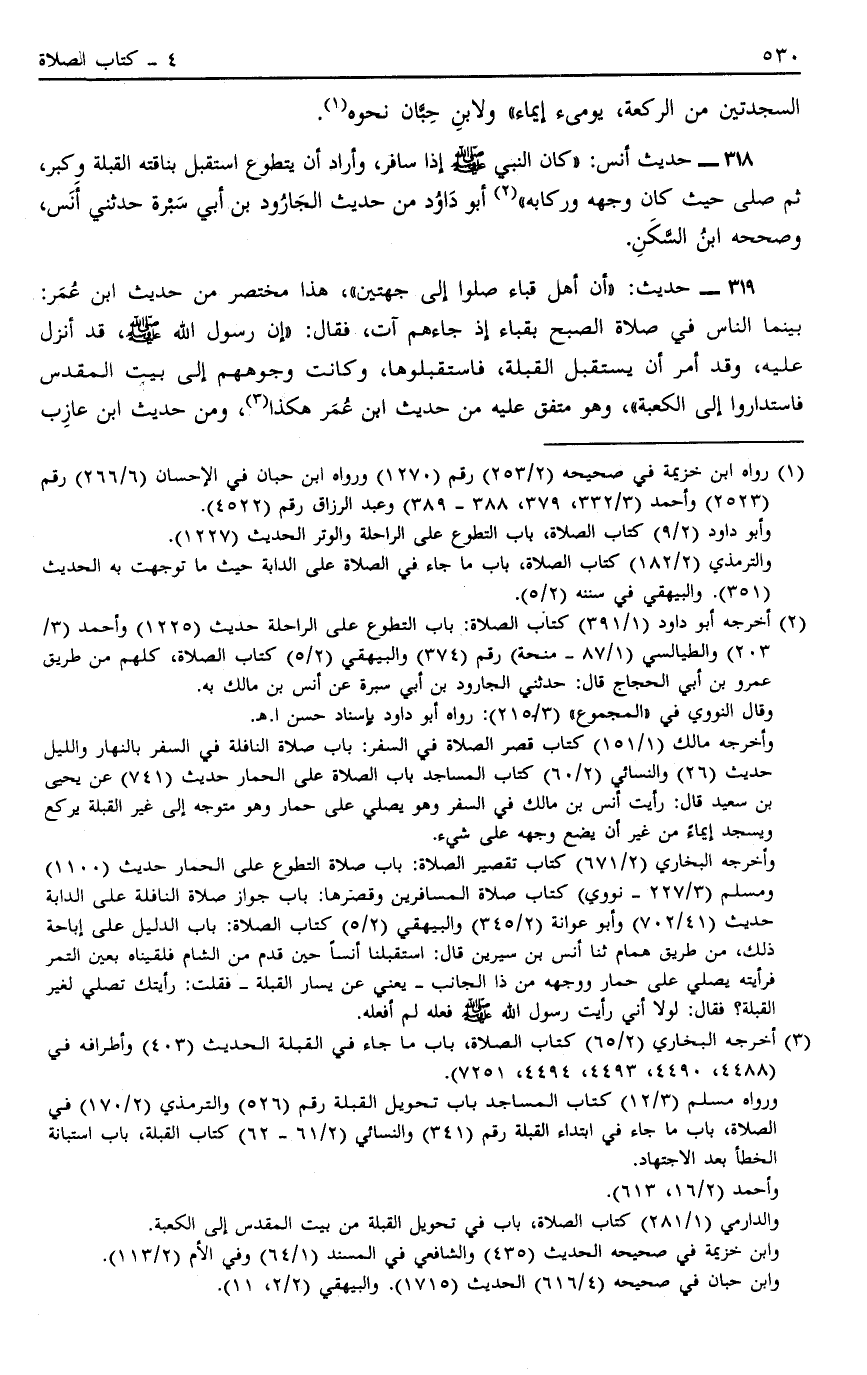 ٥٣٠ ٤ ـ كتاب الصلاة
السجدتين من الركعة، يومىء إيماء» ولابنِ حِبَّان نحوه(١).
٣١٨ ـ حديث أنس: «كان النبي ﷺ إذا سافر، وأراد أن يتطوع استقبل بناقته القبلة وكبر،
ثم صلى حيث كان وجهه وركابه»(٢) أبو دَاوُد من حديث الجَارُود بن أبي سَبْرة حدثني أَنَس،
وصححه ابنُ السَّكَنِ.
٣١٩ ـ حديث: «أن أهل قباء صلوا إلى جهتين»، هذا مختصر من حديث ابن عُمَر:
بينما الناس في صلاة الصبح بقباء إذ جاءهم آت، فقال: «إن رسول الله ﷺ، قد أنزل
عليه، وقد أمر أن يستقبل القبلة، فاستقبلوها، وكانت وجوههم إلى بيت المقدس
فاستداروا إلى الكعبة»، وهو متفق عليه من حديث ابن عُمَر هكذا(٣)، ومن حديث ابن عازِب
(١) رواه ابن خزيمة في صحيحه (٢٥٣/٢) رقم (١٢٧٠) ورواه ابن حبان في الإحسان (٢٦٦/٦) رقم
(٢٥٢٣) وأحمد (٣٣٢/٣، ٣٧٩، ٣٨٨ ـ ٣٨٩) وعبد الرزاق رقم (٤٥٢٢).
وأبو داود (٩/٢) كتاب الصلاة، باب التطوع على الراحلة والوتر الحديث (١٢٢٧).
والترمذي (١٨٢/٢) كتاب الصلاة، باب ما جاء في الصلاة على الدابة حيث ما توجهت به الحديث
(٣٥١). والبيهقي في سننه (٥/٢).
(٢) أخرجه أبو داود (٣٩١/١) كتاب الصلاة: باب التطوع على الراحلة حديث (١٢٢٥) وأحمد (٣/
٢٠٣) والطيالسي (٨٧/١ ـ منحة) رقم (٣٧٤) والبيهقي (٥/٢) كتاب الصلاة، كلهم من طريق
عمرو بن أبي الحجاج قال: حدثني الجارود بن أبي سبرة عن أنس بن مالك به.
وقال النووي في «المجموع» (٢١٥/٣): رواه أبو داود بإسناد حسن ا.هـ.
وأخرجه مالك (١٥١/١) كتاب قصر الصلاة في السفر: باب صلاة النافلة في السفر بالنهار والليل
حديث (٢٦) والنسائي (٦٠/٢) كتاب المساجد باب الصلاة على الحمار حديث (٧٤١) عن يحيى
بن سعيد قال: رأيت أنس بن مالك في السفر وهو يصلي على حمار وهو متوجه إلى غير القبلة يركع
ويسجد إيماءً من غير أن يضع وجهه على شيء.
وأخرجه البخاري (٦٧١/٢) كتاب تقصير الصلاة: باب صلاة التطوع على الحمار حديث (١١٠٠)
ومسلم (٢٢٧/٣ ـ نووي) كتاب صلاة المسافرين وقصرها: باب جواز صلاة النافلة على الدابة
حديث (٧٠٢/٤١) وأبو عوانة (٣٤٥/٢) والبيهقي (٥/٢) كتاب الصلاة: باب الدليل على إباحة
ذلك، من طريق همام ثنا أنس بن سيرين قال: استقبلنا أنساً حين قدم من الشام فلقيناه بعين التمر
فرأيته يصلي على حمار ووجهه من ذا الجانب ـ يعني عن يسار القبلة ـ فقلت: رأيتك تصلي لغير
القبلة؟ فقال: لولا أني رأيت رسول الله ﷺ فعله لم أفعله.
(٣) أخرجه البخاري (٦٥/٢) كتاب الصلاة، باب ما جاء في القبلة الحديث (٤٠٣) وأطرافه في
(٤٤٨٨، ٤٤٩٠، ٤٤٩٣، ٤٤٩٤، ٧٢٥١).
ورواه مسلم (١٢/٣) كتاب المساجد باب تحويل القبلة رقم (٥٢٦) والترمذي (١٧٠/٢) في
الصلاة، باب ما جاء في ابتداء القبلة رقم (٣٤١) والنسائي (٦١/٢ ـ ٦٢) كتاب القبلة، باب استبانة
الخطأ بعد الاجتهاد.
وأحمد (١٦/٢، ٦١٣).
والدارمي (٢٨١/١) كتاب الصلاة، باب في تحويل القبلة من بيت المقدس إلى الكعبة.
وابن خزيمة في صحيحه الحديث (٤٣٥) والشافعي في المسند (٦٤/١) وفي الأم (١١٣/٢).
وابن حبان في صحيحه (٦١٦/٤) الحديث (١٧١٥). والبيهقي (٢/٢، ١١).